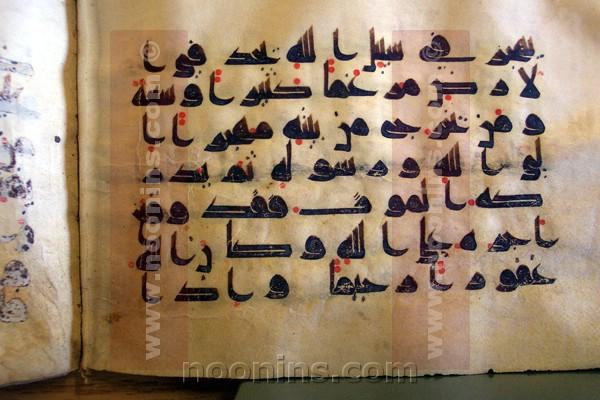 يهجر في سبيل الله يجد في ا
لارض مرغما كثيرا وسعة
ومن يخرج من بيته مهجرا ا
لى الله ورسوله ثم يدر
كه الموت فقد وقع
اجره على الله وكان الله
غفورا رحيما واذا
www.noonins.com
www.noonins.com
noonins.com